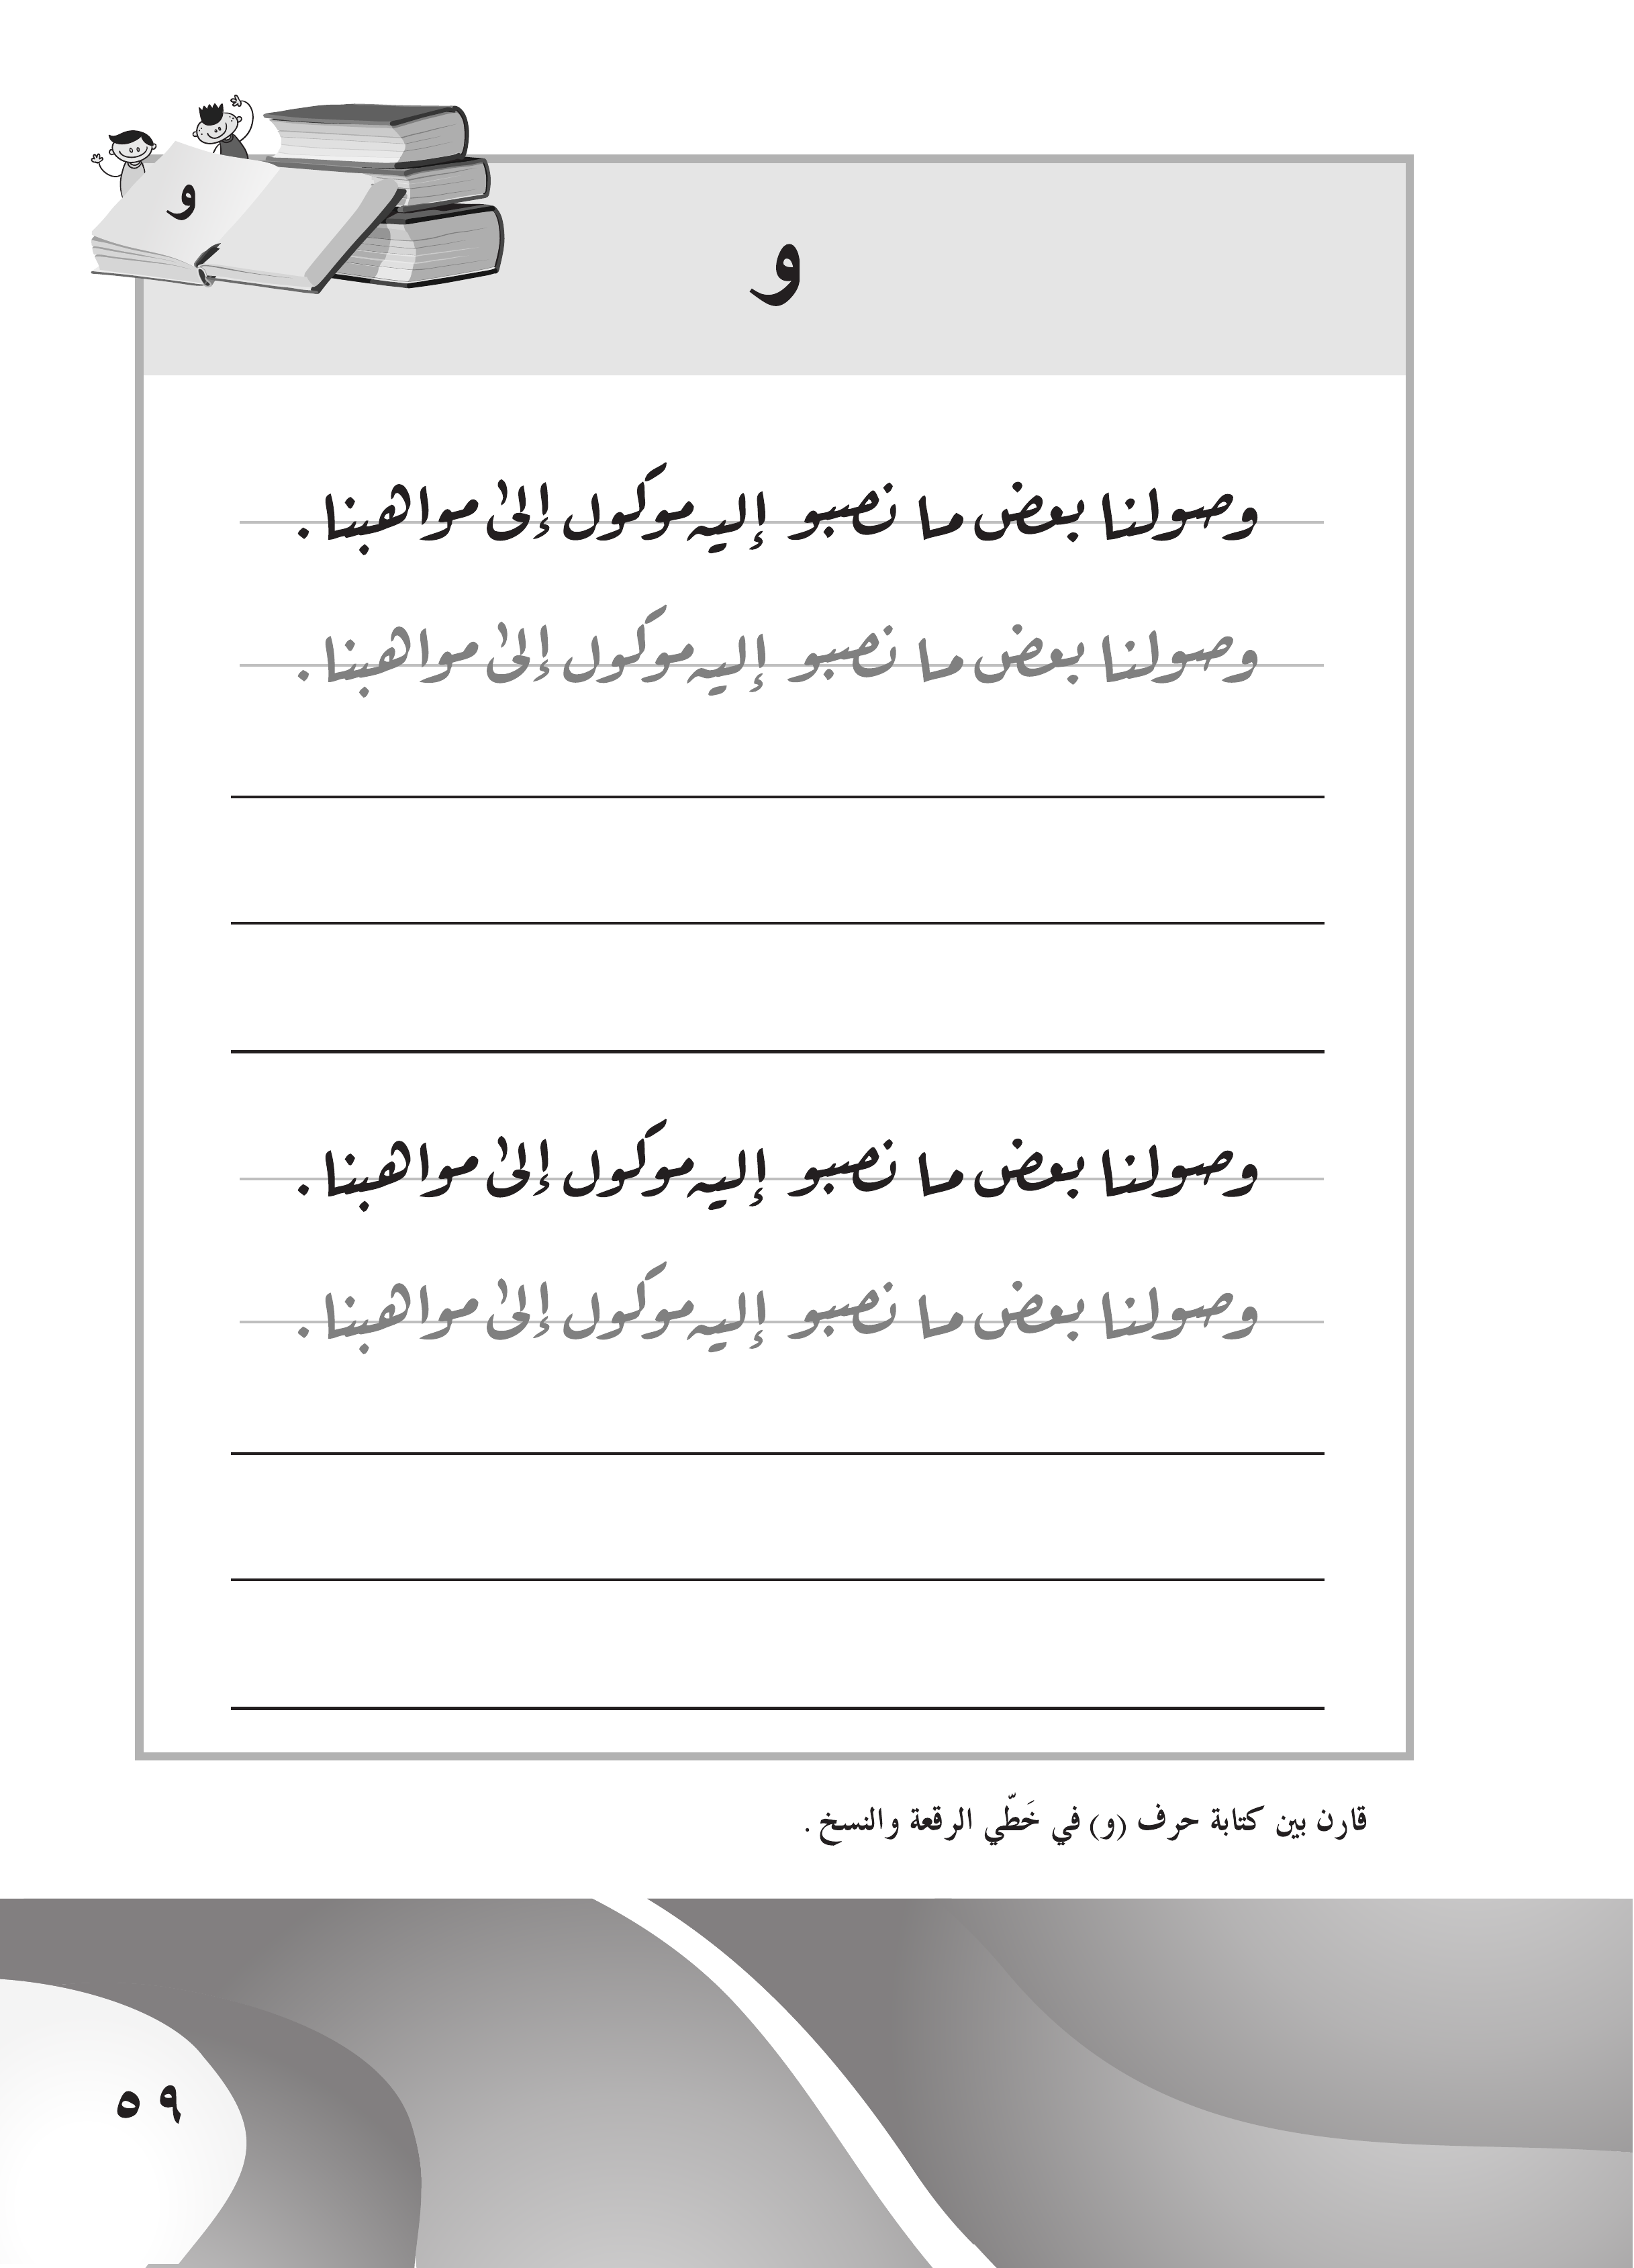 و
و
وصولنا بعض ما نصبو إليه موكَول إلىٰ مواهبنا .
وصولنا بعض ما نصبو إليه موكَول إلىٰ مواهبنا .
وصولنا بعض ما نصبو إليه موكَول إلىٰ مواهبنا .
وصولنا بعض ما نصبو إليه موكَول إلىٰ مواهبنا .
قارن بين كتابة حرف (و) في خَطّي الرقعة والنسخ .
٥٩